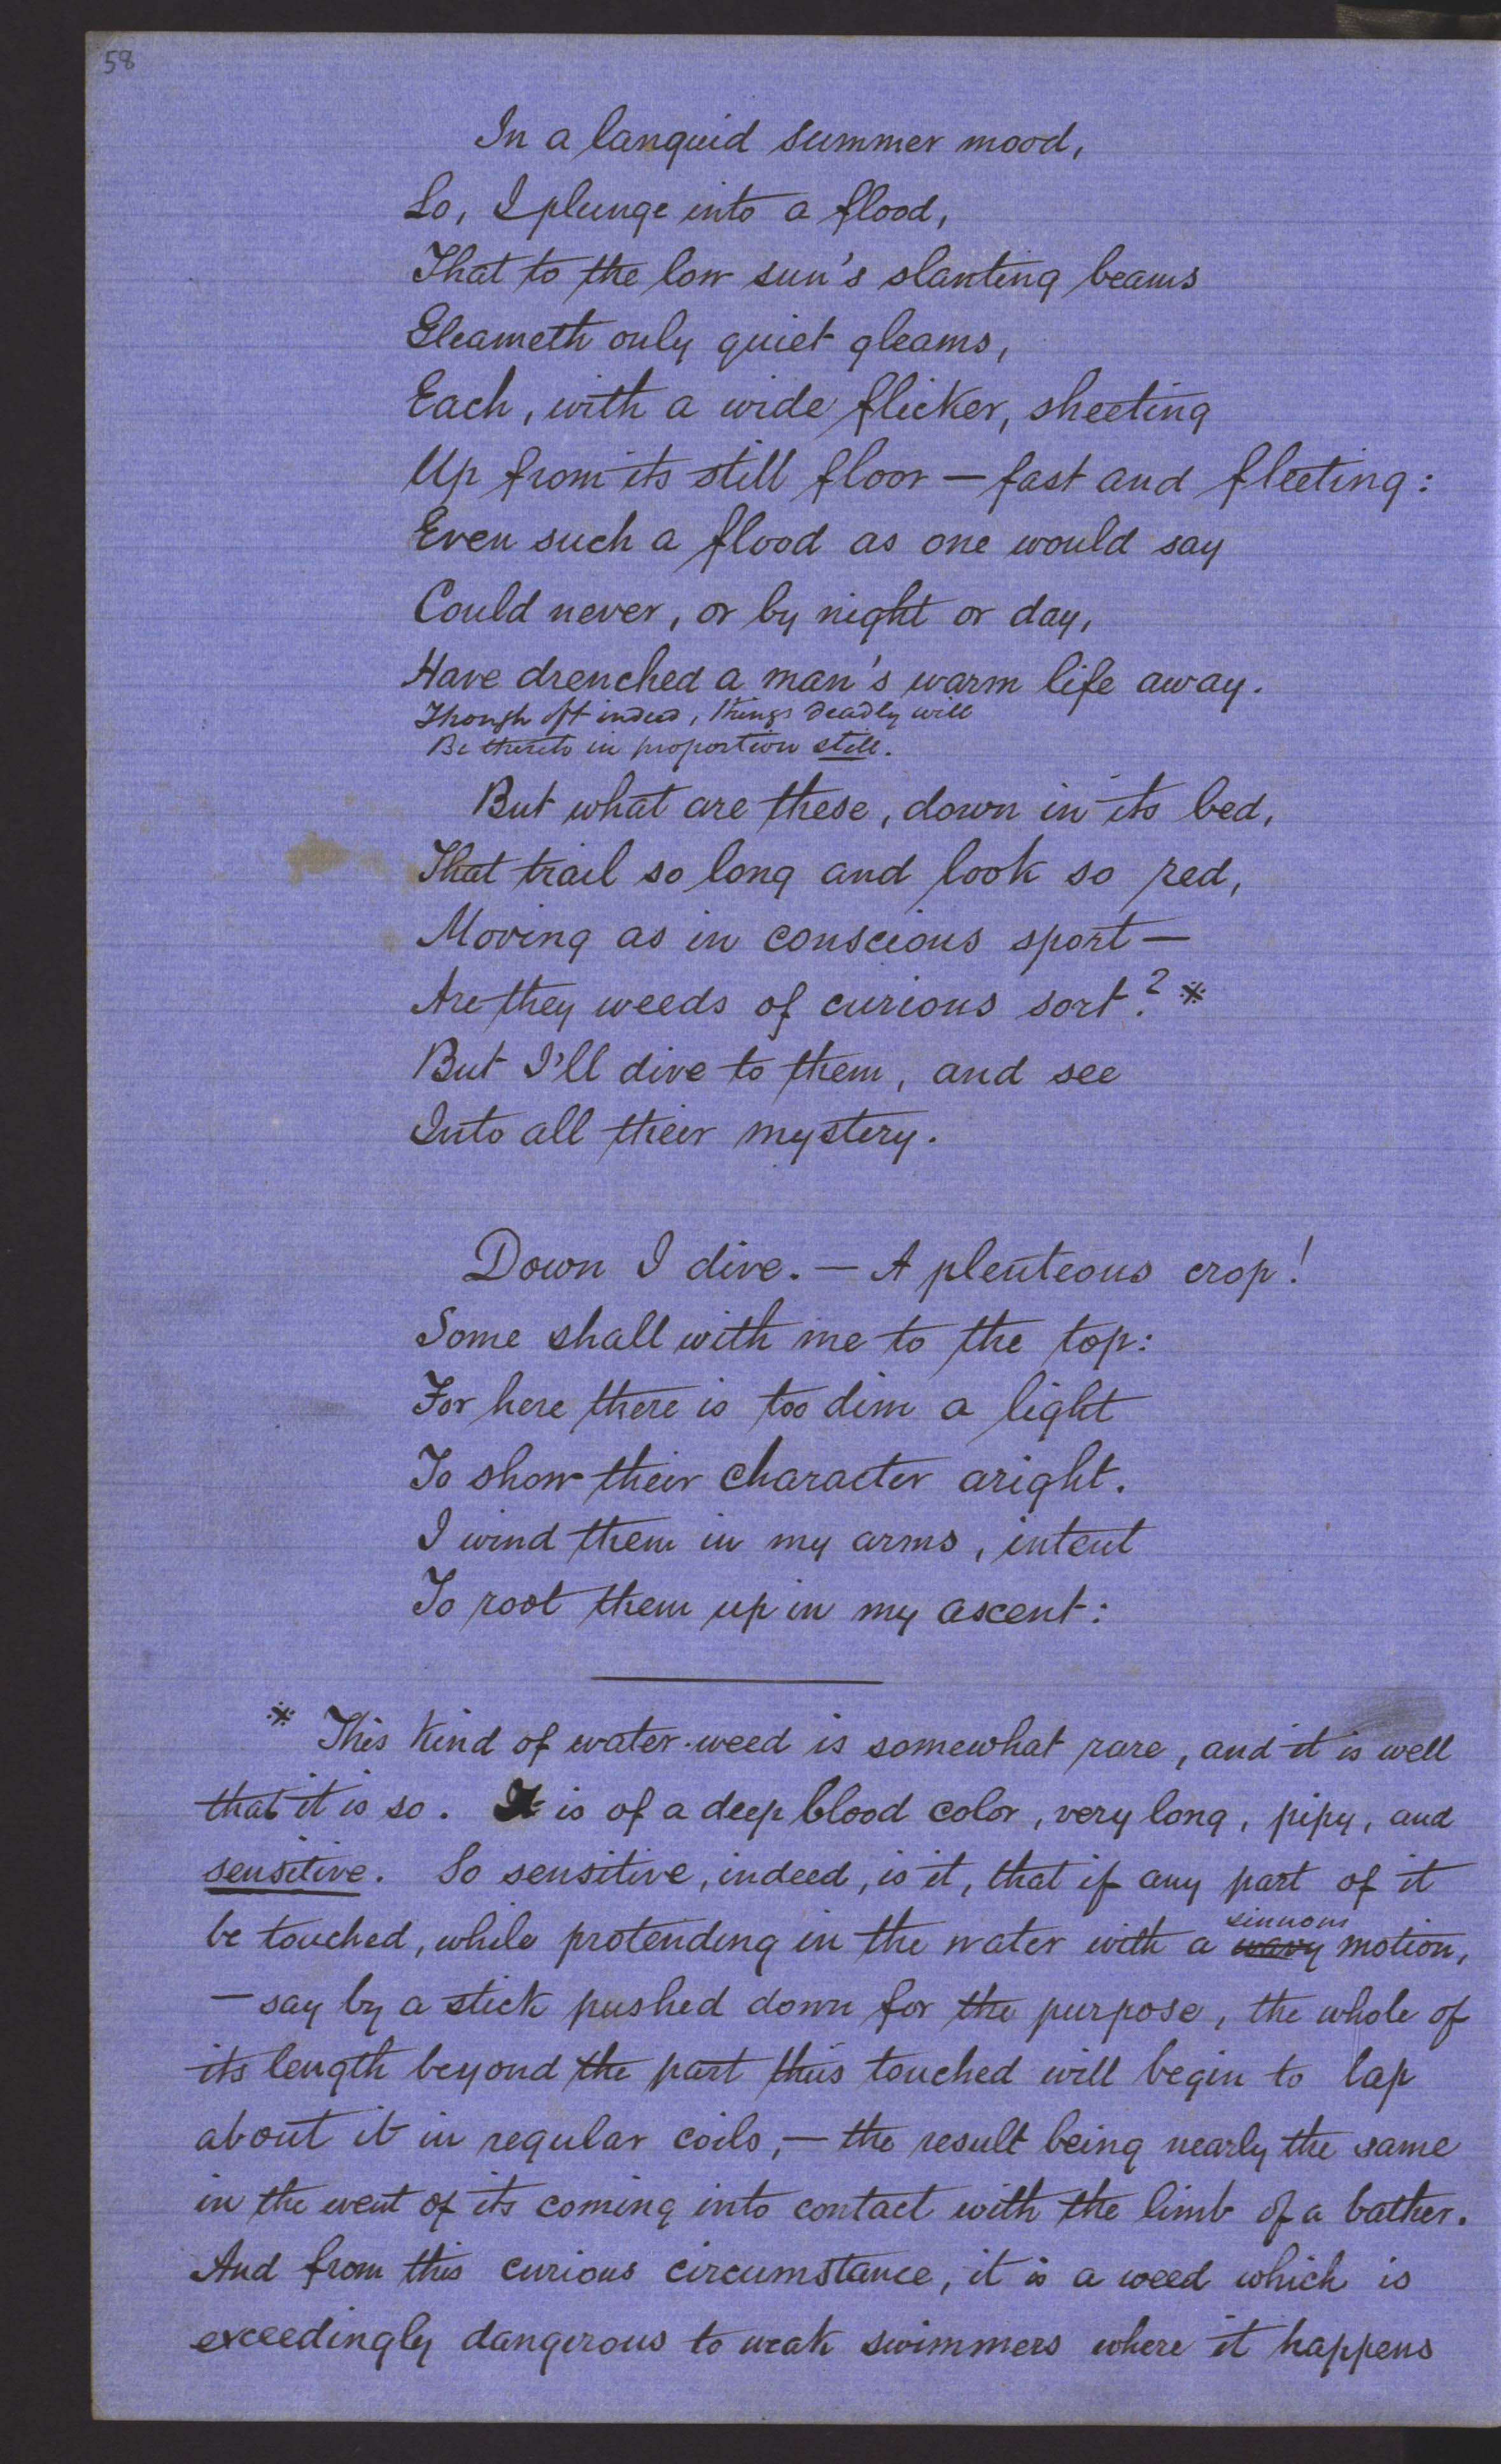 58
In a languid summer mood,
Lo, I plunge into a flood,
That to the low sun's slanting beams
Gleameth only quiet gleams,
Each, with a wide flicker, sheeting
Up from its still floor — fast and fleeting:
Even such a flood as one would say
Could never, or by night or day,
Have drenched a man's warm life away.
Though oft indeed, things deadly will
Be thereto in proportion still.
But what are these, down in its bed,
That trail so long and look so red,
Moving as in conscious sport—
Are they weeds of curious sort? *
But I'll dive to them, and see
Into all their mystery.
Down I dive. — A plenteous crop!
Some shall with me to the top:
For here there is too dim a light
To show their character aright.
I wind them in my arms, intent
To root them up in my ascent:
* This kind of water-weed is somewhat rare, and it is well
that it is so. It is of a deep blood color, very long, pipy, and
sensitive. So sensitive, indeed, is it, that if any part of it
sinuous
be touched, while protending in the water with a wavy motion,
— say by a stick pushed down for the purpose, the whole of
its length beyond the part thus touched will begin to lap
about it in regular coils, — the result being nearly the same
in the event of its coming into contact with the limb of a bather.
And from this curious circumstance, it is a weed which is
exceedingly dangerous to weak swimmers where it happens